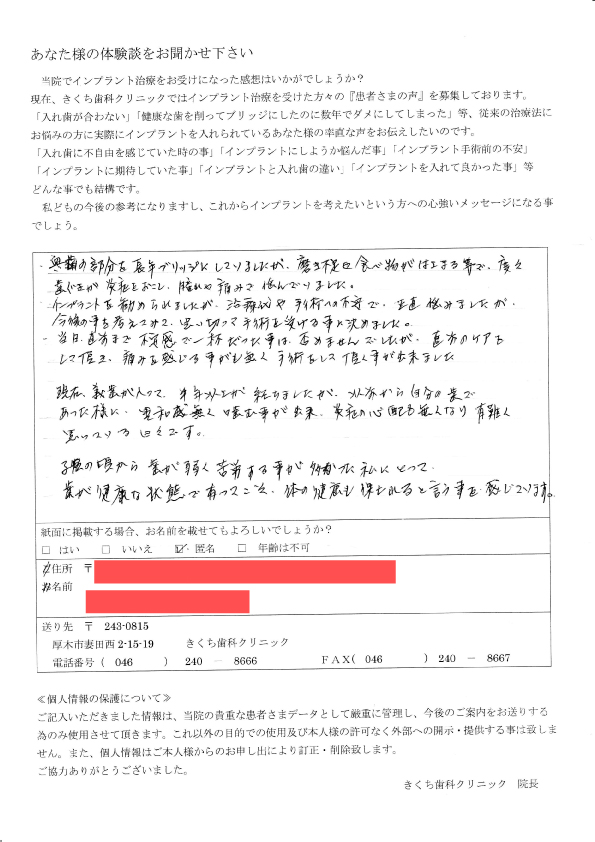 あなた様の体験談をお聞かせ下さい
当院でインプラント治療をお受けになった感想はいかがでしょうか？
現在、きくち歯科クリニックではインプラント治療を受けた方々の『患者さまの声』を募集しております。
「入れ歯が合わない」「健康な歯を削ってブリッジにしたのに数年でダメにしてしまった」等、従来の治療法に
お悩みの方に実際にインプラントを入れられているあなた様の率直な声をお伝えしたいのです。
「入れ歯に不自由を感じていた時の事」「インプラントにしようか悩んだ事」「インプラント手術前の不安」
「インプラントに期待していた事」「インプラントと入れ歯の違い」「インプラントを入れて良かった事」等
どんな事でも結構です。
私どもの今後の参考になりますし、これからインプラントを考えたいという方への心強いメッセージになる事
でしょう。
・奥歯の部分を長年ブリッジにしていましたが、磨き残しや食べ物がはさまる等で、度々
炎症をおこし、腫れや痛みで悩んでいました。
インプラントを勧められましたが、治療代や手術への不安で、正直悩みましたが、
今後の事を考えてみて、思い切って手術を受ける事に決めました。
・当日直前まで不安感で一杯だった事は否めませんでしたが、直前のケアを
して頂き、痛みを感じる事がも無く手術をして頂く事が出来ました
現在、義歯が入って、半年以上が経ちましたが、以前から自分の歯で
あった様に、違和感無く噛む事が出来、炎症の心配も無くなり有難く
思っている日々です。
子供の頃から歯が弱く苦労する事が多かった私にとって、
歯が健康な状態で有ってこそ、体の健康も保たれると言う事を感じています。
紙面に掲載する場合、お名前を載せてもよろしいでしょうか？
□ はい □ いいえ ☑ 匿名 □ 年齢は不可
ご住所 〒
お名前
送り先 〒 243-0815
厚木市妻田西 2-15-19 きくち歯科クリニック
電話番号（ 046 ） 240 － 8666 FAX（ 046 ） 240 － 8667
≪個人情報の保護について≫
ご記入いただきました情報は、当院の貴重な患者さまデータとして厳重に管理し、今後のご案内をお送りする
為のみ使用させて頂きます。これ以外の目的での使用及び本人様の許可なく外部への開示・提供する事は致しま
せん。また、個人情報はご本人様からのお申し出により訂正・削除致します。
ご協力ありがとうございました。
きくち歯科クリニック 院長